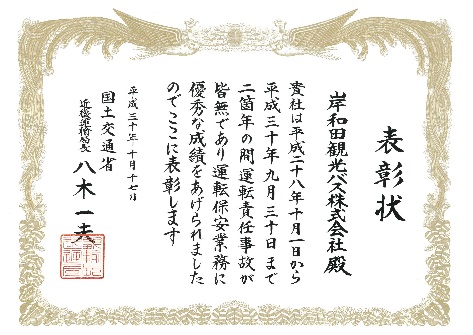 表彰状
岸和田観光バス株式会社 殿
貴社は平成二十八年十月一日から
平成三十年九月三十日まで
二箇年の間運転責任事故が
皆無であり運転保安業務に
優秀な成績をあげられました
のでここに表彰します
平成三十年十月十七日
国土交通省
近畿運輸局長 八木 一夫